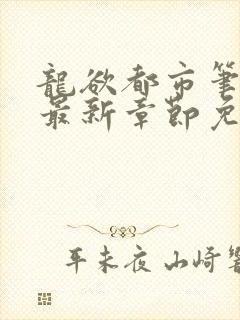 龍欲都市筆
最新章節免
平未夜 山崎響